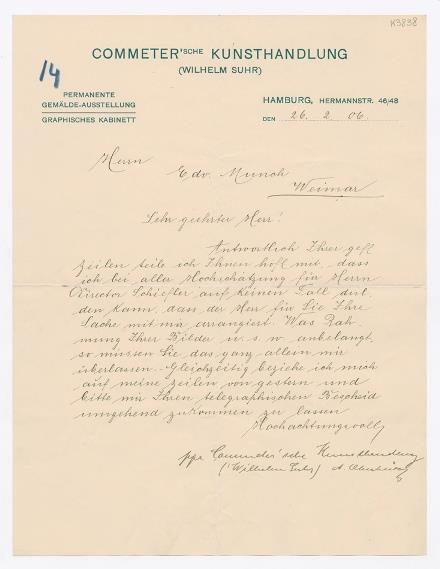 K3838
14
COMMETER'SCHE KUNSTHANDLUNG
(WILHELM SUHR)
PERMANENTE
GEMÄLDE-AUSSTELLUNG
GRAPHISCHES KABINETT
HAMBURG, HERMANNSTR. 46/48
DEN 26. 2. 06.
Herrn
Edv. Munch
Weimar
Sehr geehrter Herr!
Antwortlich Ihrer gefl.
Zeilen teile ich Ihnen höfl. mit, dass
ich bei aller Hochschätzung für Herrn
Director Schiefler auf keinen Fall dul-
den kann, dass der Herr für Sie Ihre
Sache mit mir arrangiert. Was Rah-
mung Ihrer Bilder u. s. w. anbelangt,
so müssen Sie das ganz allein mir
überlassen. Gleichzeitig beziehe ich mich
auf meine Zeilen von gestern und
bitte mir Ihren telegraphischen Bescheid
umgehend zukommen zu lassen
Hochachtungsvoll
ppa Commeter'sche Kunsthandlung
(Wilhelm Suhr)